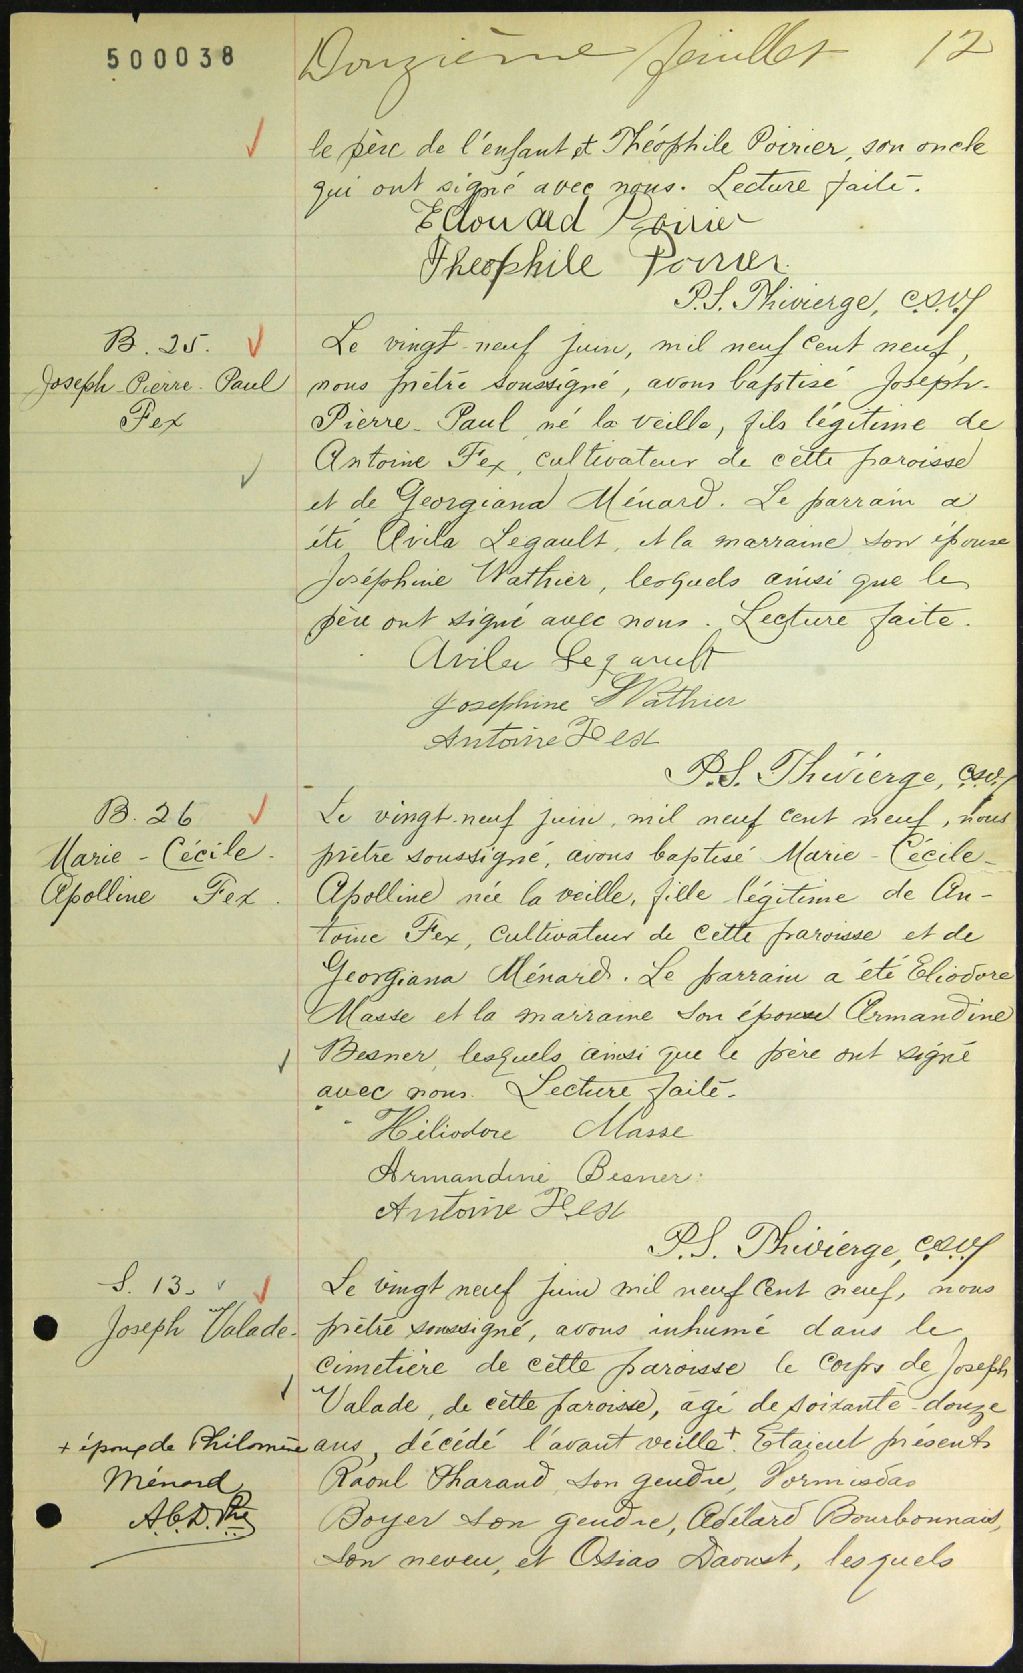 500038
Douzième feuillet 12
le père de l'enfant et Théophile Poirier, son oncle
qui ont signé avec nous. Lecture faite.
Edouard Poirier
Theophile Poirier.
P.S. Thivierge, c.s.v.
B. 25.
Joseph-Pierre-Paul
Fex
Le vingt-neuf juin, mil neuf cent neuf,
nous prêtre soussigné, avons baptisé Joseph-
Pierre-Paul, né la veille, fils légitime de
Antoine Fex, cultivateur de cette paroisse
et de Georgiana Ménard. Le parrain a
été Avila Legault, et la marraine son épouse
Joséphine Wathier, lesquels ainsi que le
père ont signé avec nous. Lecture faite.
Avila Legault
Josephine Wathier
Antoine Fex
P.S. Thivierge, c.s.v.
B. 26
Marie-Cécile-
Apolline Fex.
Le vingt-neuf juin, mil neuf cent neuf, nous
prêtre soussigné, avons baptisé Marie-Cécile-
Apolline née la veille, fille légitime de An-
toine Fex, cultivateur de cette paroisse et de
Georgiana Ménard. Le parrain a été Eliodore
Masse et la marraine son épouse Armandine
Besner, lesquels ainsi que le père ont signé
avec nous. Lecture faite.
Héliodore Masse
Armandine Besner.
Antoine Fex
P.S. Thivierge, c.s.v.
S. 13.
Joseph Valade.
Le vingt neuf juin mil neuf cent neuf, nous
prêtre soussigné, avons inhumé dans le
cimetière de cette paroisse le corps de Joseph
Valade, de cette paroisse, âgé de soixante-douze
ans, décédé l'avant veille+. Etaient présents
+ époux de Philomène
Ménard
A.C.D. Ptre
Raoul Pharand son gendre, Hormisdas
Boyer son gendre, Adélard Bourbonnais,
son neveu, et Osias Daoust, lesquels